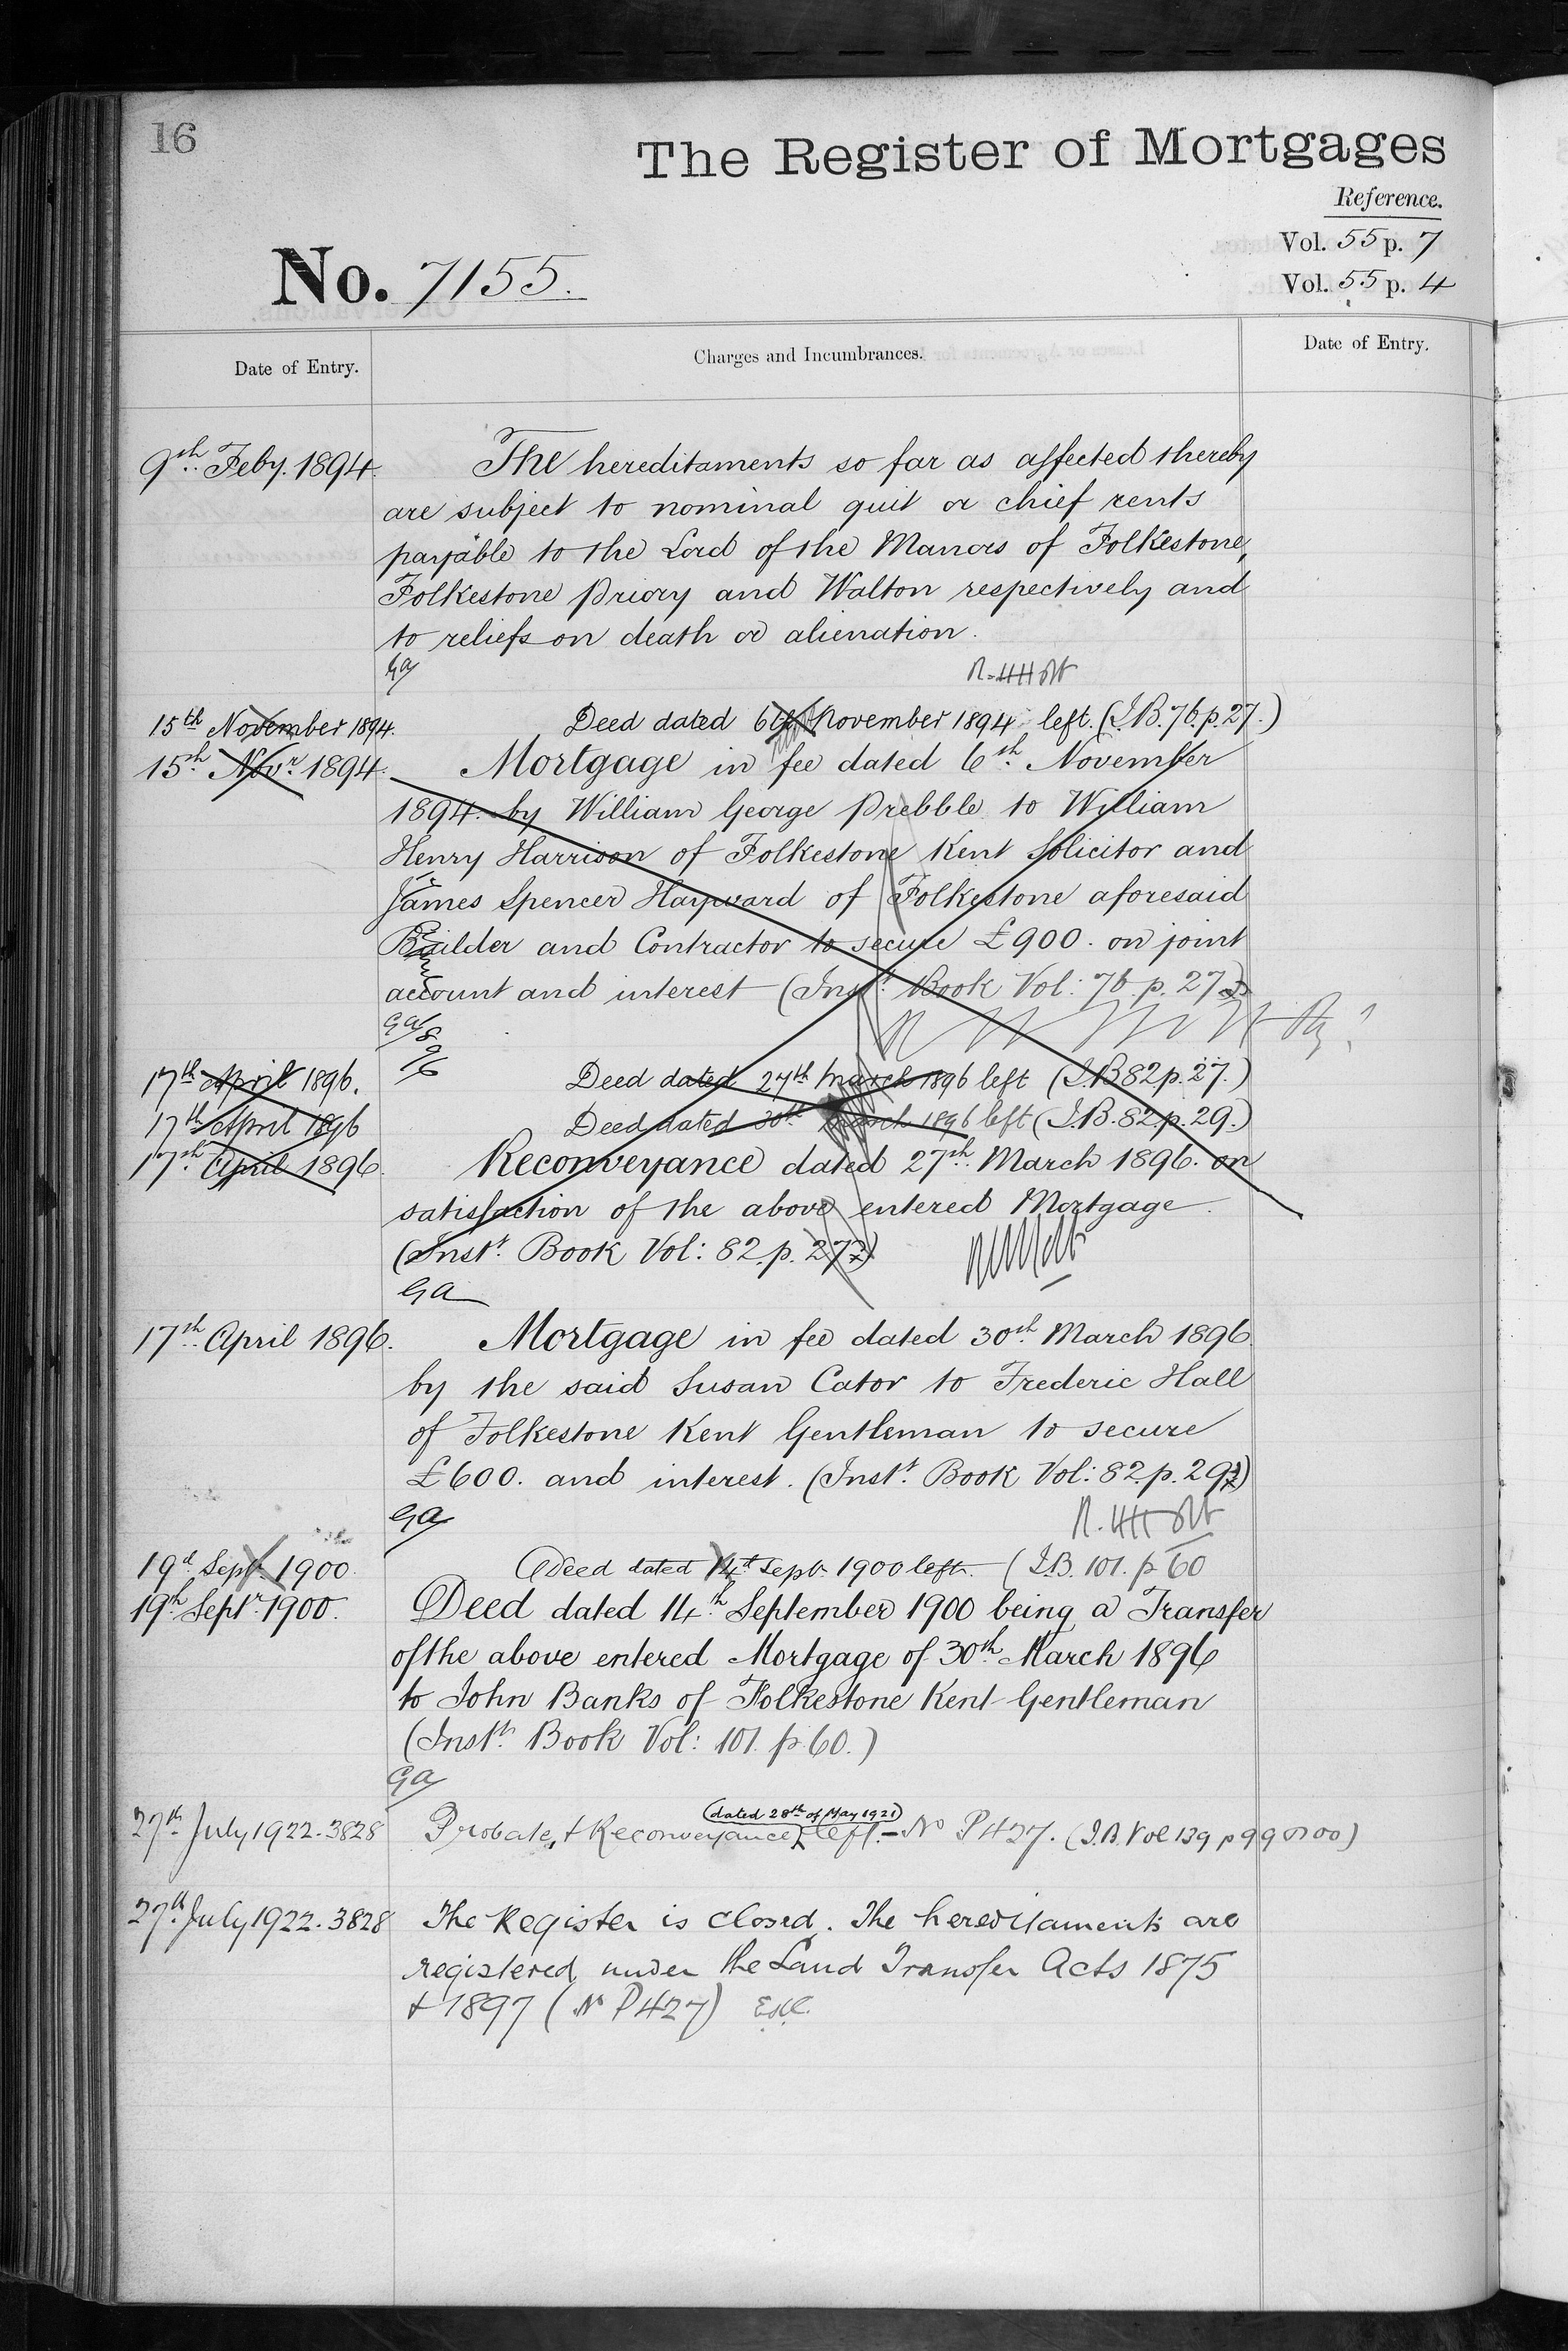 16
The Register of Mortgages
Reference.
Vol. 55 p. 7
No. 7155.
Vol. 55 p. 4
Date of Entry.
Charges and Incumbrances.
Date of Entry.
9th Feby. 1894. The hereditaments so far as affected thereby
are subject to nominal quit or chief rents
payable to the Lord of the Manors of Folkestone,
Folkestone Priory and Walton respectively and
to reliefs on death or alienation.
GA
15th November 1894. Deed dated 6th November 1894 left. (I.B. 76. p. 27.)
15th Novr. 1894. Mortgage in fee dated 6th November
1894. by William George Prebble to William
Henry Harrison of Folkestone Kent Solicitor and
James Spencer Hayward of Folkestone aforesaid
Builder and Contractor to secure £900. on joint
account and interest (Instt. Book Vol: 76. p. 27.)
GA
17th April 1896. Deed dated 27th March 1896 left (I.B 82 p. 27.)
17th April 1896 Deed dated 30th March 1896 left (I.B. 82. p. 29.)
17th April 1896. Reconveyance dated 27th March 1896. on
satisfaction of the above entered Mortgage.
(Instt. Book Vol: 82. p. 27.)
GA
17th April 1896. Mortgage in fee dated 30th March 1896.
by the said Susan Cator to Frederic Hall
of Folkestone Kent Gentleman to secure
£600. and interest. (Instt. Book Vol: 82. p. 29.)
GA
19d Sept. 1900. Deed dated 14th Sept. 1900 left. (I.B. 101. p 60
19th Septr. 1900. Deed dated 14th September 1900 being a Transfer
of the above entered Mortgage of 30th March 1896
to John Banks of Folkestone Kent Gentleman
(Instt. Book Vol: 101. p. 60.)
GA
(dated 28th of May 1921)
27th July 1922. 3828 Probate, & Reconveyance left. - No P427. (I.B. Vol 139 p 99 & 100)
27th July 1922. 3828 The Register is closed. The hereditaments are
registered under the Land Transfer Acts 1875
& 1897 (No P427)